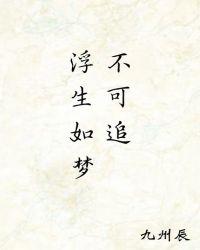 不可追
浮生如梦
九州辰